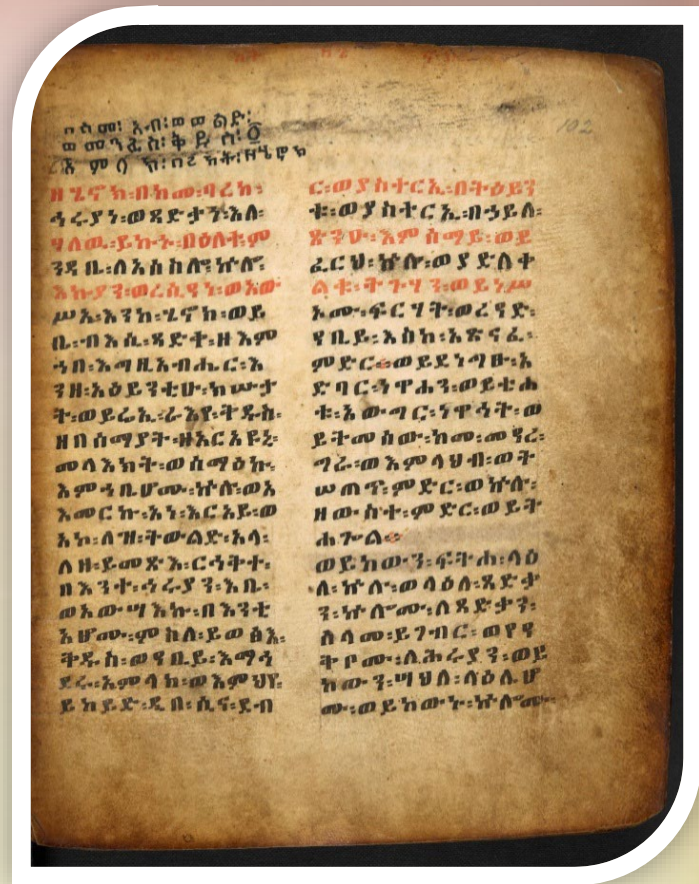 በስመ፡ አብ፡ወወልድ፡
ወመንፈስ፡ቅዱስ፡፩
አምላክ፡በረከት፡ዘሄኖክ
ዘሄኖክ፡በከመ፡ባረከ፡
ኅሩያነ፡ወጻድቃን፡እለ፡
ሃለዉ፡ይኩኑ፡በዕለተ፡ም
ንዳቤ፡ለአሰስሎ፡ኵሎ፡
እኩያን፡ወረሲዓን፡ወአው
ሥአ፡እንከ፡ሄኖክ፡ወይ
ቤ፡ብእሲ፡ጻድቅ፡ዘእም
ኀበ፡እግዚአብሔር፡እ
ንዘ፡አዕይንቲሁ፡ክሡታ
ት፡ወይሬኢ፡ራእየ፡ቅዱስ፡
ዘበሰማያት፡ዘአርአዩኒ፡
መላእክት፡ወሰማዕኩ፡
እምኀቤሆሙ፡ኵሎ፡ወአ
እመርኩ፡አነ፡እርአይ፡ወ
አኮ፡ለዝ፡ትውልድ፡አላ፡
ለዘ፡ይመጽእ፡ርኅቅተ፡
በእንተ፡ኅሩያን፡እቤ፡
ወአውሣእኩ፡በእንቲ
አሆሙ፡ምስለ፡ይወፅእ፡
ቅዱስ፡ወዓቢይ፡እማኅ
ደሩ፡አምላክ፡ወእምህየ፡
ይከይድ፡ዲበ፡ሲና፡ደብ
102
ር፡ወያስተርኢ፡በትዕይን
ቱ፡ወያስተርኢ፡በኃይለ፡
ጽንዑ፡እምሰማይ፡ወይ
ፈርህ፡ኵሉ፡ወያድለቀ
ልቁ፡ትጉሃን፡ወይነሥ
ኦሙ፡ፍርሃት፡ወረዓድ፡
ዓቢይ፡እስከ፡አጽናፈ፡
ምድር።ወይደነግፁ፡አ
ድባር፡ነዋሐን፡ወይቴሐ
ቱ፡አውግር፡ነዋኅት፡ወ
ይትመሰው፡ከመ፡መዓረ፡
ግራ፡ወእምላህብ፡ወት
ሠጠም፡ምድር፡ወኵሉ፡
ዘውስተ፡ምድር፡ወይት
ሐጐል።
ወይከውን፡ፍትሐ፡ላዕ
ለ፡ኵሉ፡ወላዕለ፡ጻድቃ
ን፡ኵሎሙ፡ለጻድቃን፡
ሰላመ፡ይገብር፡ወየዓ
ቅቦሙ፡ለሕሩያን፡ወይ
ከውን፡ሣህለ፡ላዕሌሆ
ሙ፡ወይከውኑ፡ኵሎሙ፡